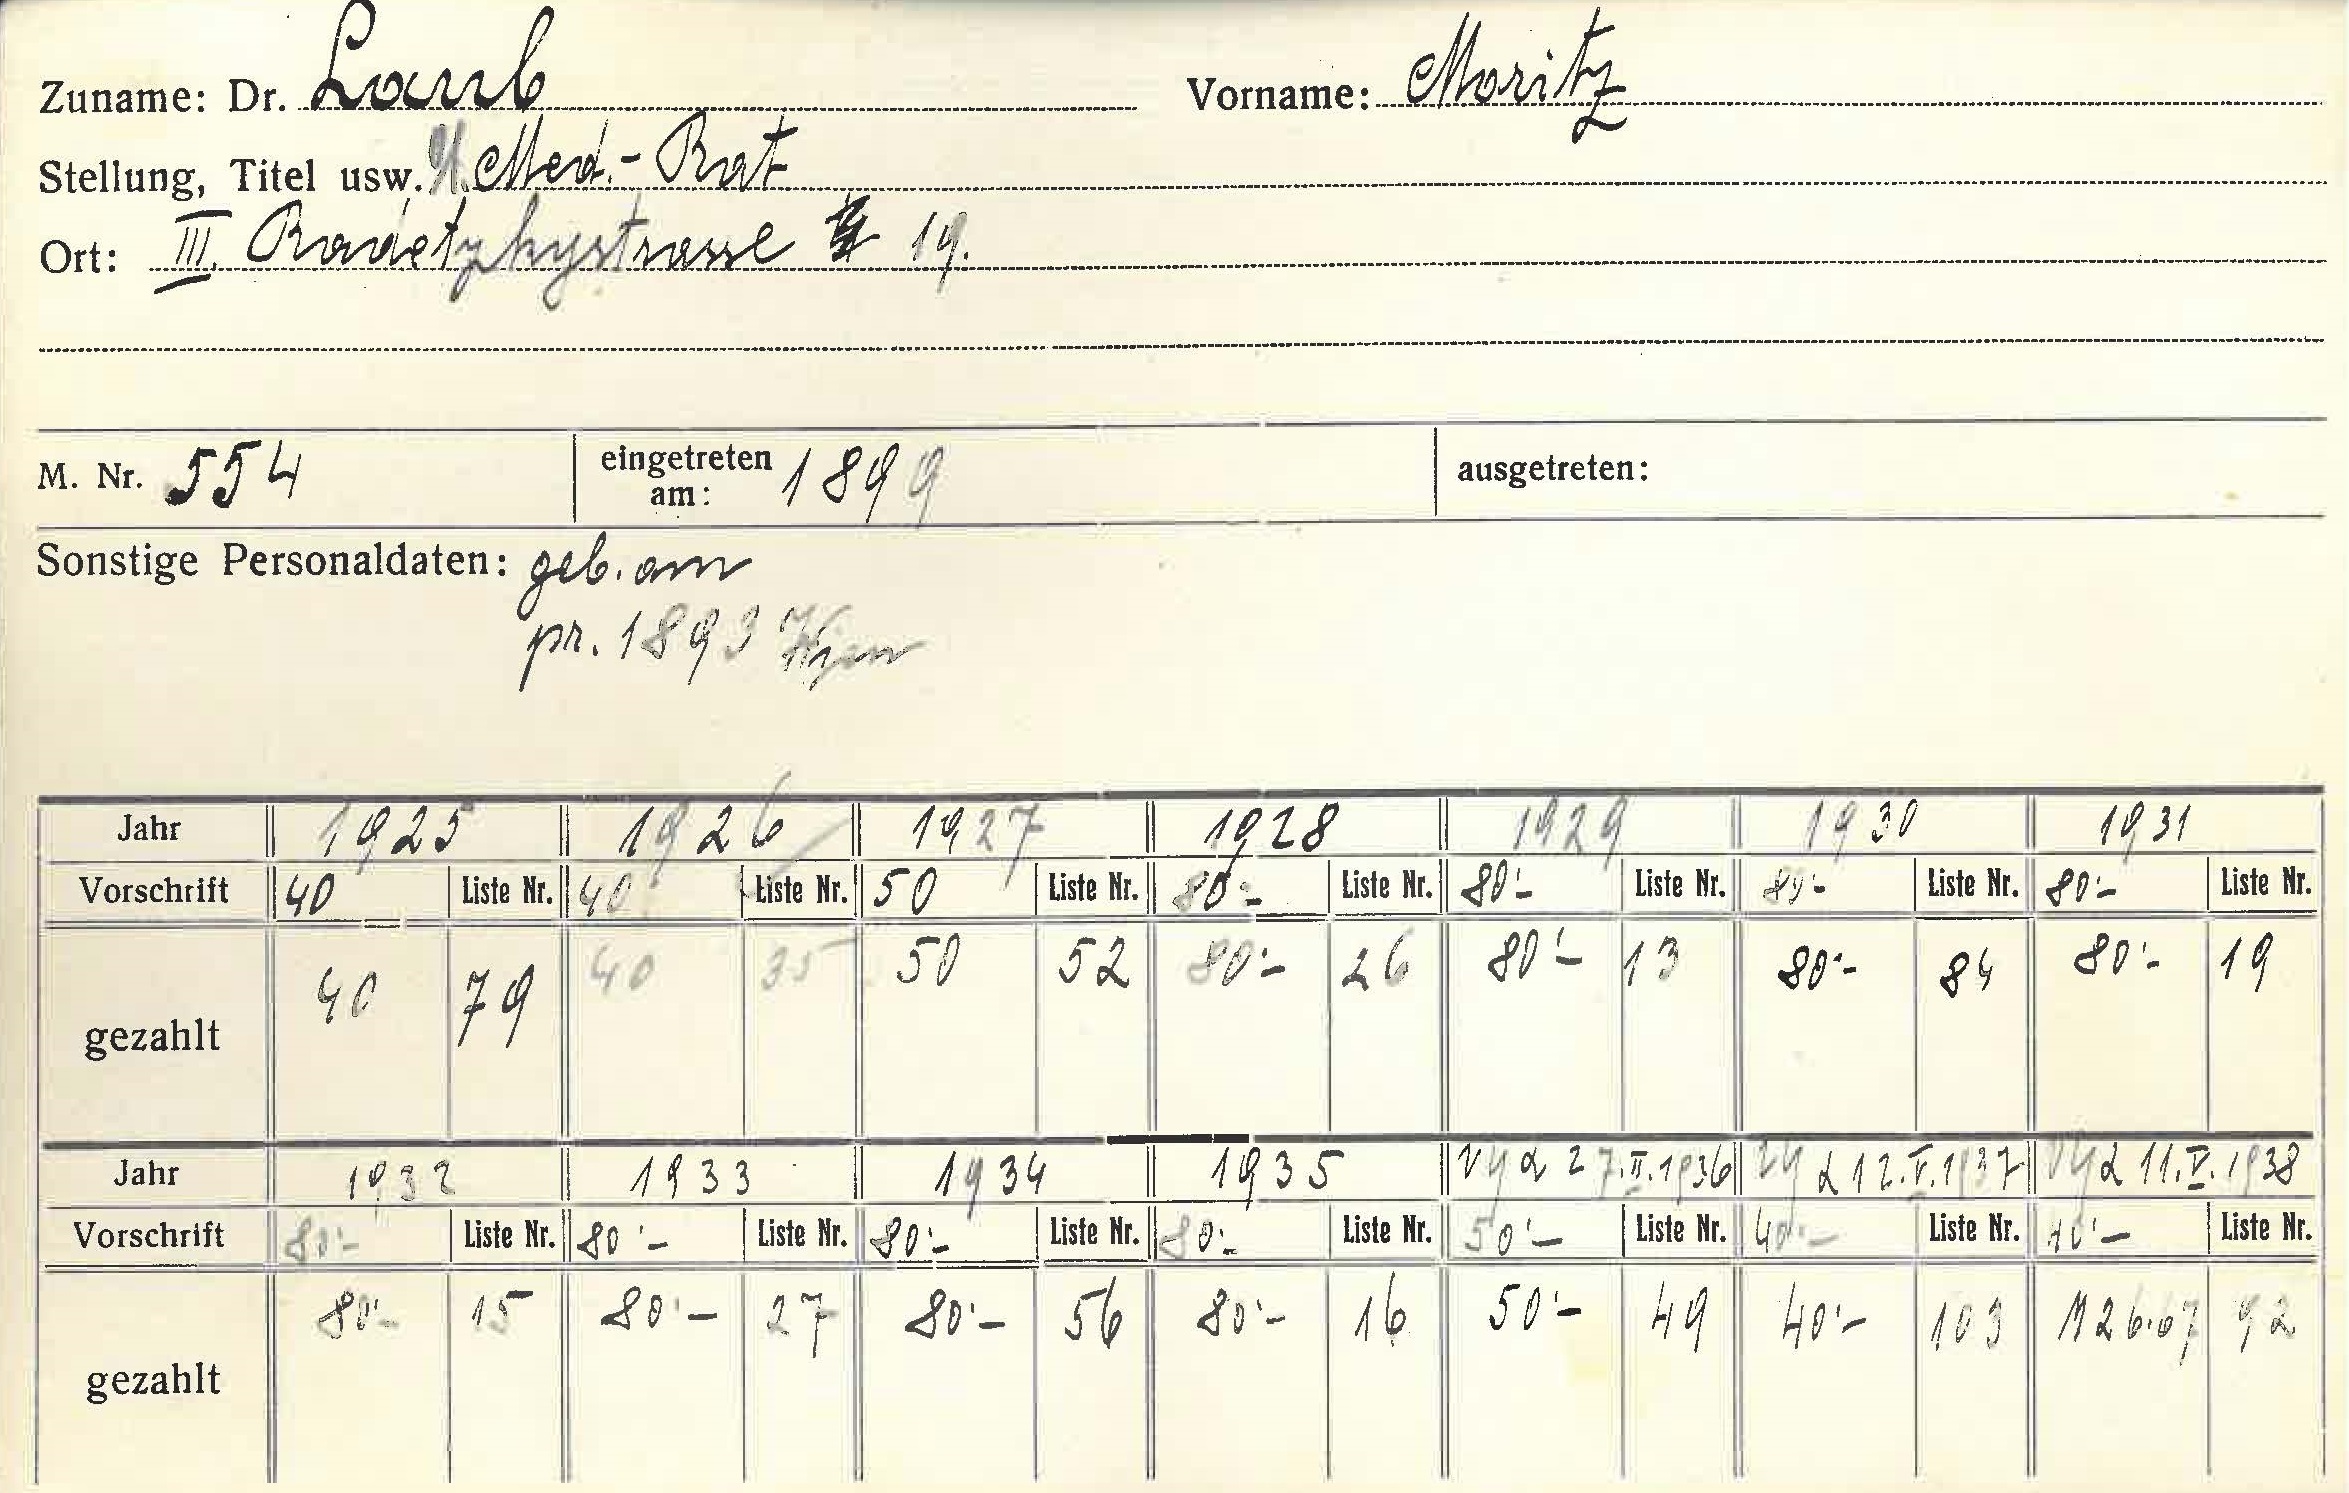 Zuname: Dr. Laub Vorname: Moritz
Stellung, Titel usw. Med.-Rat
Ort: III. Radetzkystrasse 19.
M. Nr. 554 eingetreten am: 1899 ausgetreten:
Sonstige Personaldaten: geb. am
pr. 1893 Wien
Jahr 1925 1926 1927 1928 1929 1930 1931
Vorschrift 40 Liste Nr. 40 Liste Nr. 50 Liste Nr. 80'- Liste Nr. 80'- Liste Nr. 80'- Liste Nr. 80'- Liste Nr.
gezahlt 40 79 40 35 50 52 80'- 26 80'- 13 80'- 84 80'- 19
Jahr 1932 1933 1934 1935 27.II.1936 12.V.1937 11.V.1938
Vorschrift 80'- Liste Nr. 80'- Liste Nr. 80'- Liste Nr. 80'- Liste Nr. 50'- Liste Nr. 40'- Liste Nr. 40'- Liste Nr.
gezahlt 80'- 15 80'- 27 80'- 56 80'- 16 50'- 49 40'- 103 26.67 92